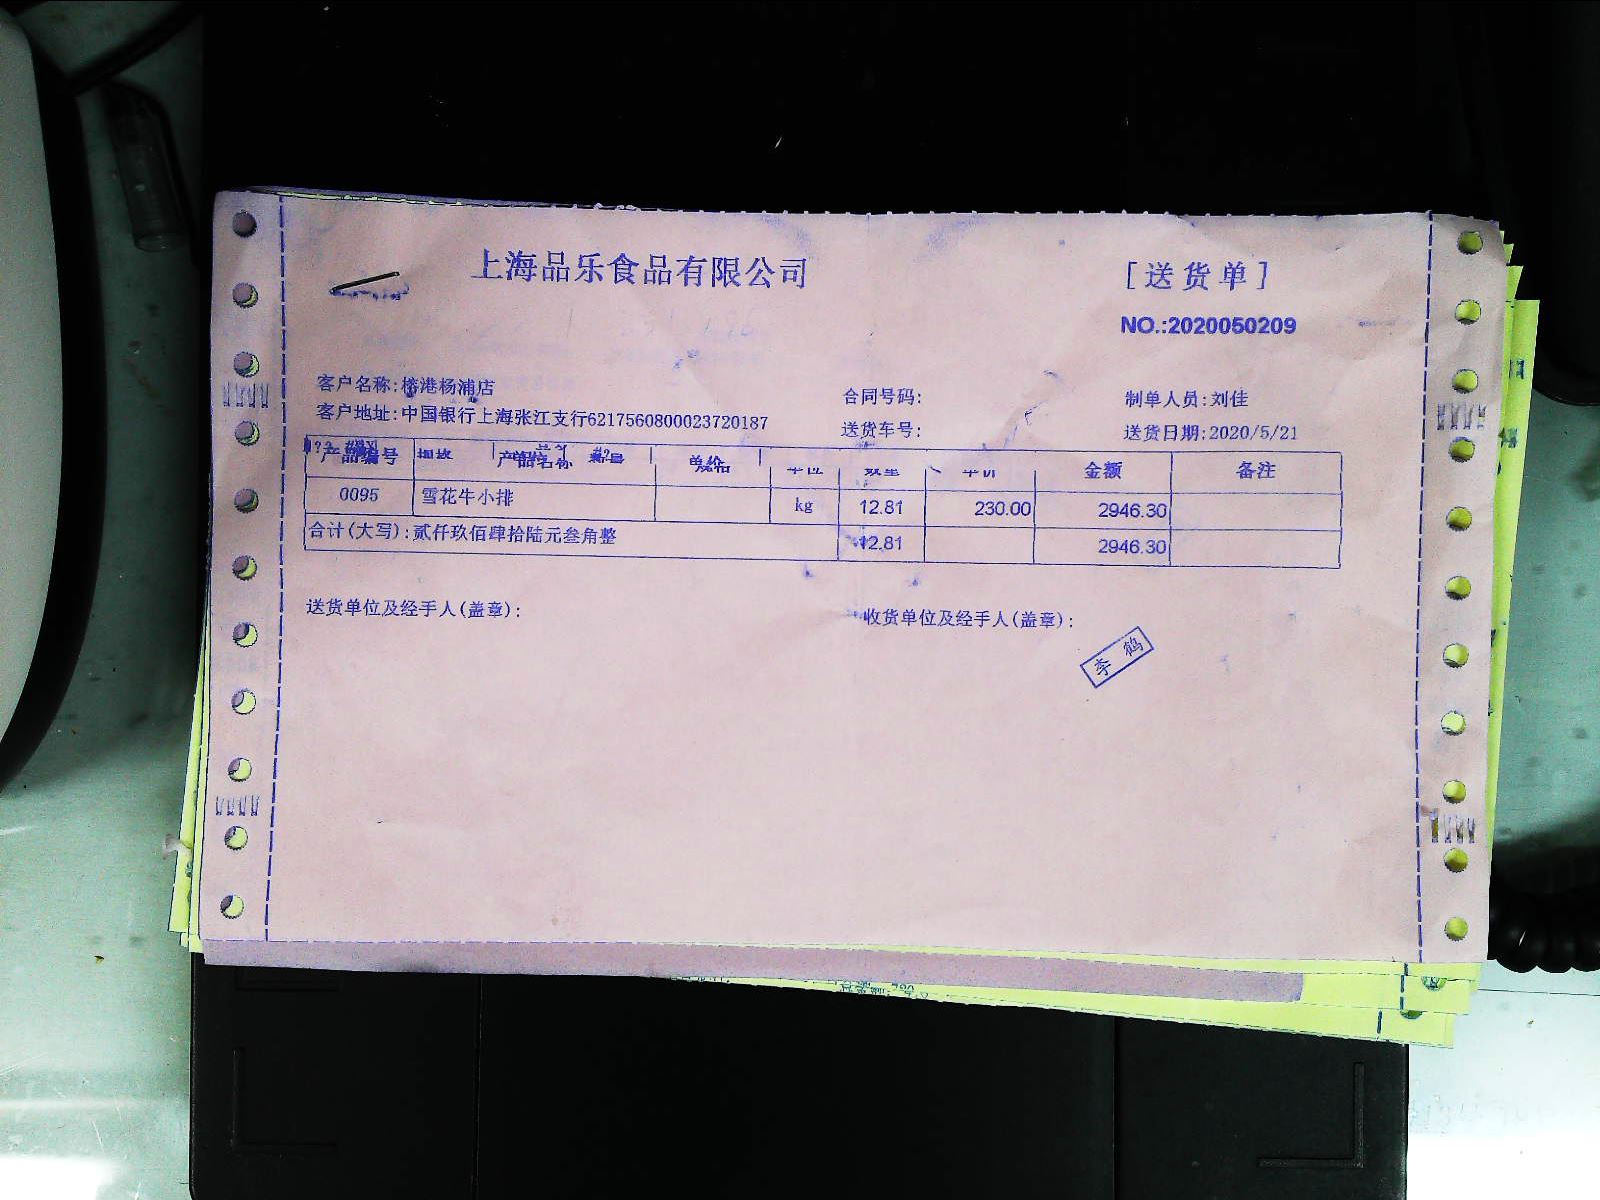 上海品乐食品有限公司
[送货单]
NO.:2020050209
客户名称:港杨浦店
合同号码:
制单人员:刘佳
客户地址:中国银行上海张江支行6217560800023720187
送货车号:
送货日期:2020/5/21
产品编号 产品名称 单位 数量 单价 金额 备注
0095 雪花牛小排 kg 12.81 230.00 2946.30
合计(大写):贰仟玖佰肆拾陆元叁角整 12.81 2946.30
送货单位及经手人(盖章):
收货单位及经手人(盖章):
李鹤